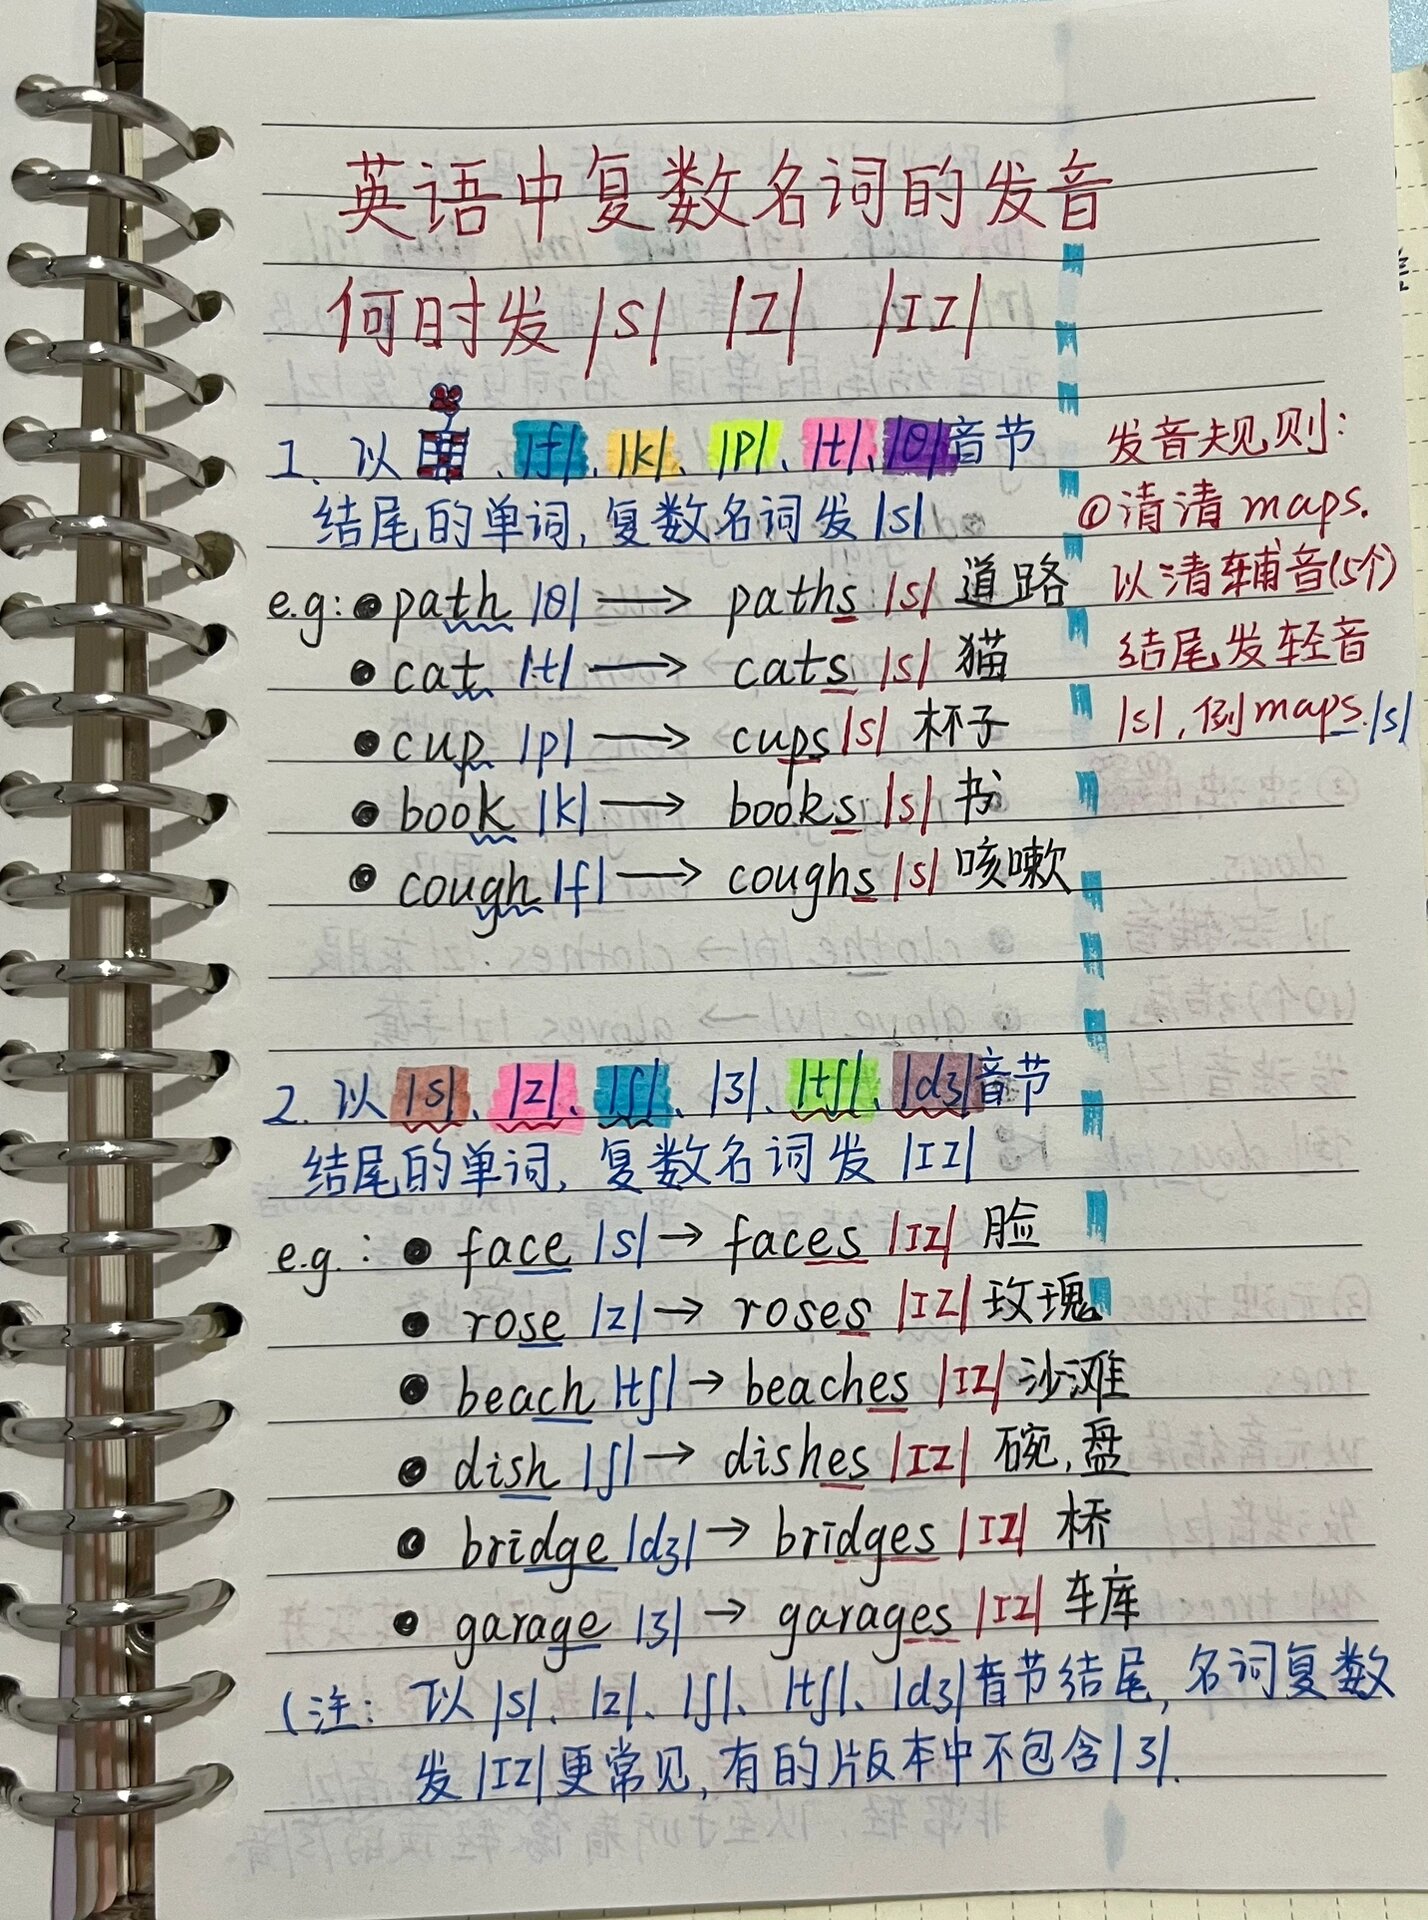 英语中复数名词的发音
何时发 |s| |z| |ɪz|
1. 以 、|f|、|k|、|p|、|t|、|θ|音节
结尾的单词, 复数名词发 |s|
e.g: ● path |θ| → paths |s| 道路
● cat |t| → cats |s| 猫
● cup |p| → cups |s| 杯子
● book |k| → books |s| 书
● cough |f| → coughs |s| 咳嗽
2. 以 |s|、|z|、|ʃ|、|ʒ|、|tʃ|、|dʒ|音节
结尾的单词, 复数名词发 |ɪz|
e.g. : ● face |s| → faces |ɪz| 脸
● rose |z| → roses |ɪz| 玫瑰
● beach |tʃ| → beaches |ɪz| 沙滩
● dish |ʃ| → dishes |ɪz| 碗,盘
● bridge |dʒ| → bridges |ɪz| 桥
● garage |ʒ| → garages |ɪz| 车库
(注: 以 |s|、|z|、|ʃ|、|tʃ|、|dʒ|音节结尾, 名词复数
发 |ɪz| 更常见, 有的版本中不包含 |ʒ|.
发音规则:
①清清 maps.
以清辅音(5个)
结尾发轻音
|s|, 例 maps. |s|